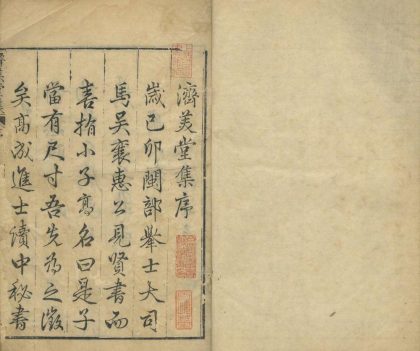 濟美堂集序
歲己卯閩部舉士大司
馬吳襄惠公見賢書而
喜指小子高名曰是子
當有尺寸吾先為之徵
矣高成進士讀中秘書